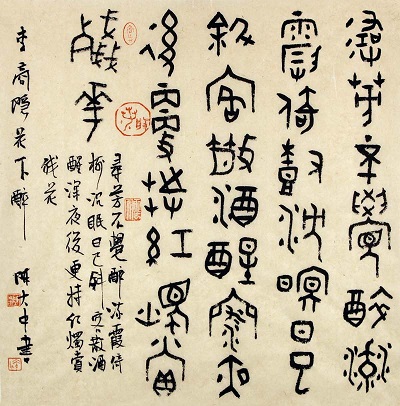 尋芳不覺醉流
霞倚樹沉眠日已
斜客散酒醒深夜
後更持紅燭賞
殘花
尋芳不覺醉流霞倚
樹沉眠日已斜客散酒
醒深夜後更持紅燭賞
殘花
李商隱花下醉 陳大中書